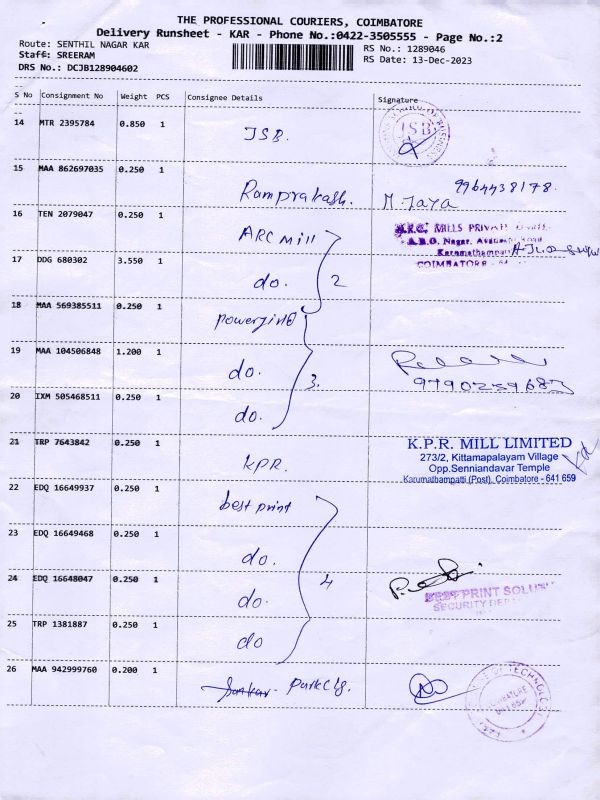 THE PROFESSIONAL COURIERS, COIMBATORE
Delivery Runsheet - KAR - Phone No.:0422-3505555 - Page No.:2
Route: SENTHIL NAGAR KAR
RS No.: 1289046
Staff: SREERAM
RS Date: 13-Dec-2023
DRS No.: DCJB128904602
S No Consignment No Weight PCS Consignee Details Signature
14 MTR 2395784 0.850 1 JSB. JSB
15 MAA 862697035 0.250 1 Ramprakash. M. Jaya 9964438178.
16 TEN 2079047 0.250 1 ARC mill MILLS PRIVATE
A.R.O. Nagar,
Karumathampatti
COIMBATORE - 64
17 DDG 680302 3.550 1 do. 2
18 MAA 569385511 0.250 1
19 MAA 104506848 1.200 1 do. 3.
20 IXM 505468511 0.250 1 do.
21 TRP 7643842 0.250 1 KPR. K.P.R. MILL LIMITED
273/2, Kittamapalayam Village
Opp.Senniandavar Temple
Karumathampatti (Post), Coimbatore - 641 659
22 EDQ 16649937 0.250 1 best print
23 EDQ 16649468 0.250 1 do.
24 EDQ 16648047 0.250 1 do. 4 BEST PRINT
SECURITY
25 TRP 1381887 0.250 1 do
26 MAA 942999760 0.200 1 Park Clg. OF TECHNOLOGY